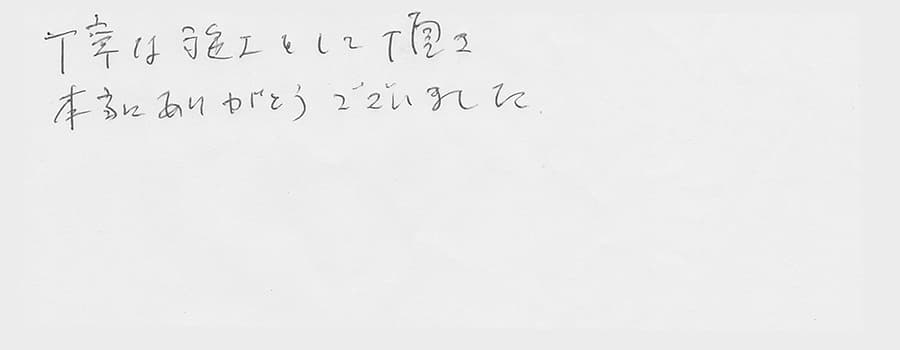 丁寧な施工をして頂き
本当にありがとうございました